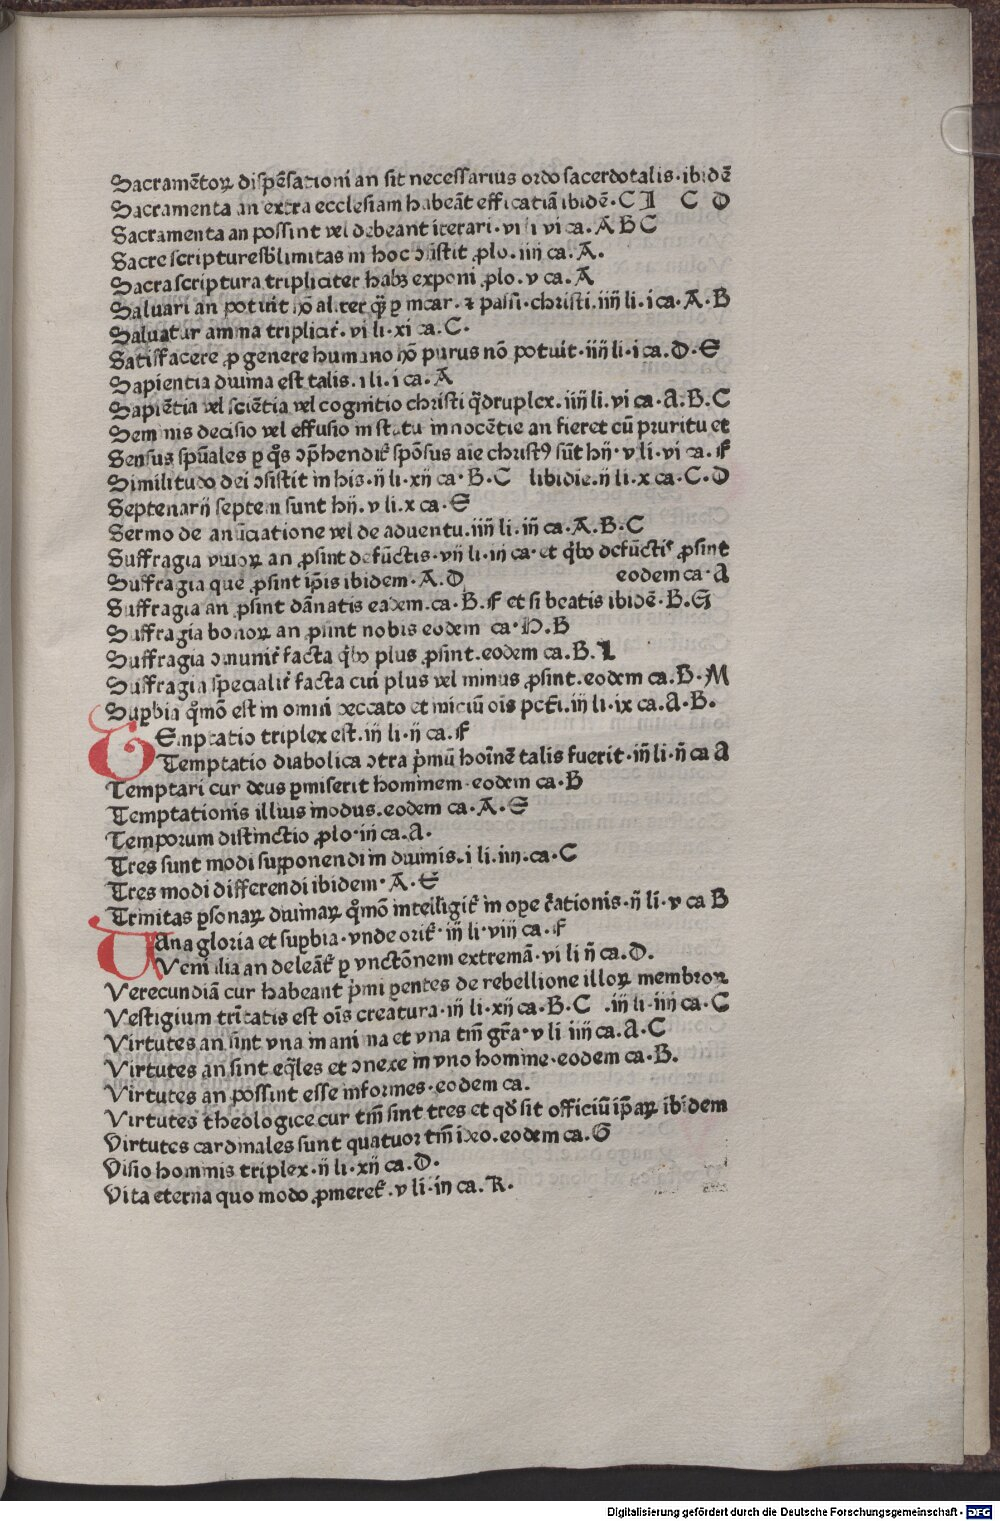 Sacramētoꝝ dispēsationi an sit necessarius ordo sacerdotalis·ibidē
Sacramenta an extra ecclesiam habeāt efficatiā ibidē·C I C D
Sacramenta an possint vel debeant iterari·vi li vi ca·A B C
Sacre scripture sublimitas in hoc ↄsistit ꝓlo·iiij ca·A·
Sacra scriptura tripliciter habꝫ exponi ꝓlo·v ca·A
Saluari an potuit hō aliter q̄ꝫ ꝑ incar·⁊ passi·christi·iiij li·i ca·A·B
Saluatur anima triplicit᷑·vi li·xi ca·C·
Satisfacere ꝓ genere humano hō purus nō potuit·iiij li·i ca·D·E
Sapientia diuina est talis·i li·i ca·A
Sapiētia vel sciētia vel cognitio christi q̄druplex·iiij li·vi ca·A·B·C
Seminis decisio vel effusio in statu innocētie an fieret cū pruritu et
Sensus spūales ꝑ q̊s ↄp̄hendit᷑ spōsus aīe christꝰ sūt hij·v li·vi ca·F
Similitudo dei ↄsistit in his·ij li·xij ca·B·C libidie·ij li·x ca·C·D
Septenarij septem sunt hij·v li·x ca·E
Sermo de anūciatione vel de aduentu·iiij li·iij ca·A·B·C
Suffragia viuoꝝ an ꝓsint defūctis·vij li·iij ca·et q̄bꝰ defūctis ꝓsint
Suffragia que ꝓsint ip̄is ibidem·A·D eodem ca·A
Suffragia an ꝓsint dānatis eadem·ca·B·F et si beatis ibidē·B·G
Suffragia bonoꝝ an ꝓsint nobis eodem ca·H·B
Suffragia ↄmunit᷑ facta q̄bꝰ plus ꝓsint·eodem ca·B·L
Suffragia specialit᷑ facta cui plus vel minus ꝓsint·eodem ca·B·M
Suꝑbia q̊mō est in omni peccato et iniciū oīs pctī·iij li·ix ca·A·B·
TEmptatio triplex est·iij li·ij ca·F
Temptatio diabolica ↄtra pⁱmū hoīnē talis fuerit·iij li·ij ca A
Temptari cur deus ꝑmiserit hominem·eodem ca·B
Temptationis illius modus·eodem ca·A·E
Temporum distinctio ꝓlo·iij ca·A·
Tres sunt modi supponendi in diuinis·i li·iiij·ca·C
Tres modi differendi ibidem·A·E
Trinitas ꝑsonaꝝ diuinaꝝ q̊mō intelligit᷑ in opē c̄ationis·ij li·v ca B
VAna gloria et suꝑbia·vnde orit᷑·iij li·viij ca·F
Venialia an deleāt᷑ ꝑ vnctōnem extremā·vi li ij ca·D·
Verecundiā cur habeant pⁱmi ꝑentes de rebellione illoꝝ membroꝝ
Vestigium trītatis est oīs creatura·iij li·xij ca·B·C ·iij li·iiij ca·C
Virtutes an sint vna in anima et vna tm̄ gr̄a·v li·iiij ca·A·C
Virtutes an sint eq̄les et ↄnexe in vno homine·eodem ca·B·
Virtutes an possint esse informes·eodem ca·
Virtutes theologice cur tm̄ sint tres et qđ sit officiū ip̄aꝝ ibidem
Virtutes cardinales sunt quatuor tm̄ ideo·eodem ca·G
Visio hominis triplex·ij li·xij ca·D·
Vita eterna quo modo ꝓmeret᷑·v li·iij ca·K·
Digitalisierung gefördert durch die Deutsche Forschungsgemeinschaft - DFG